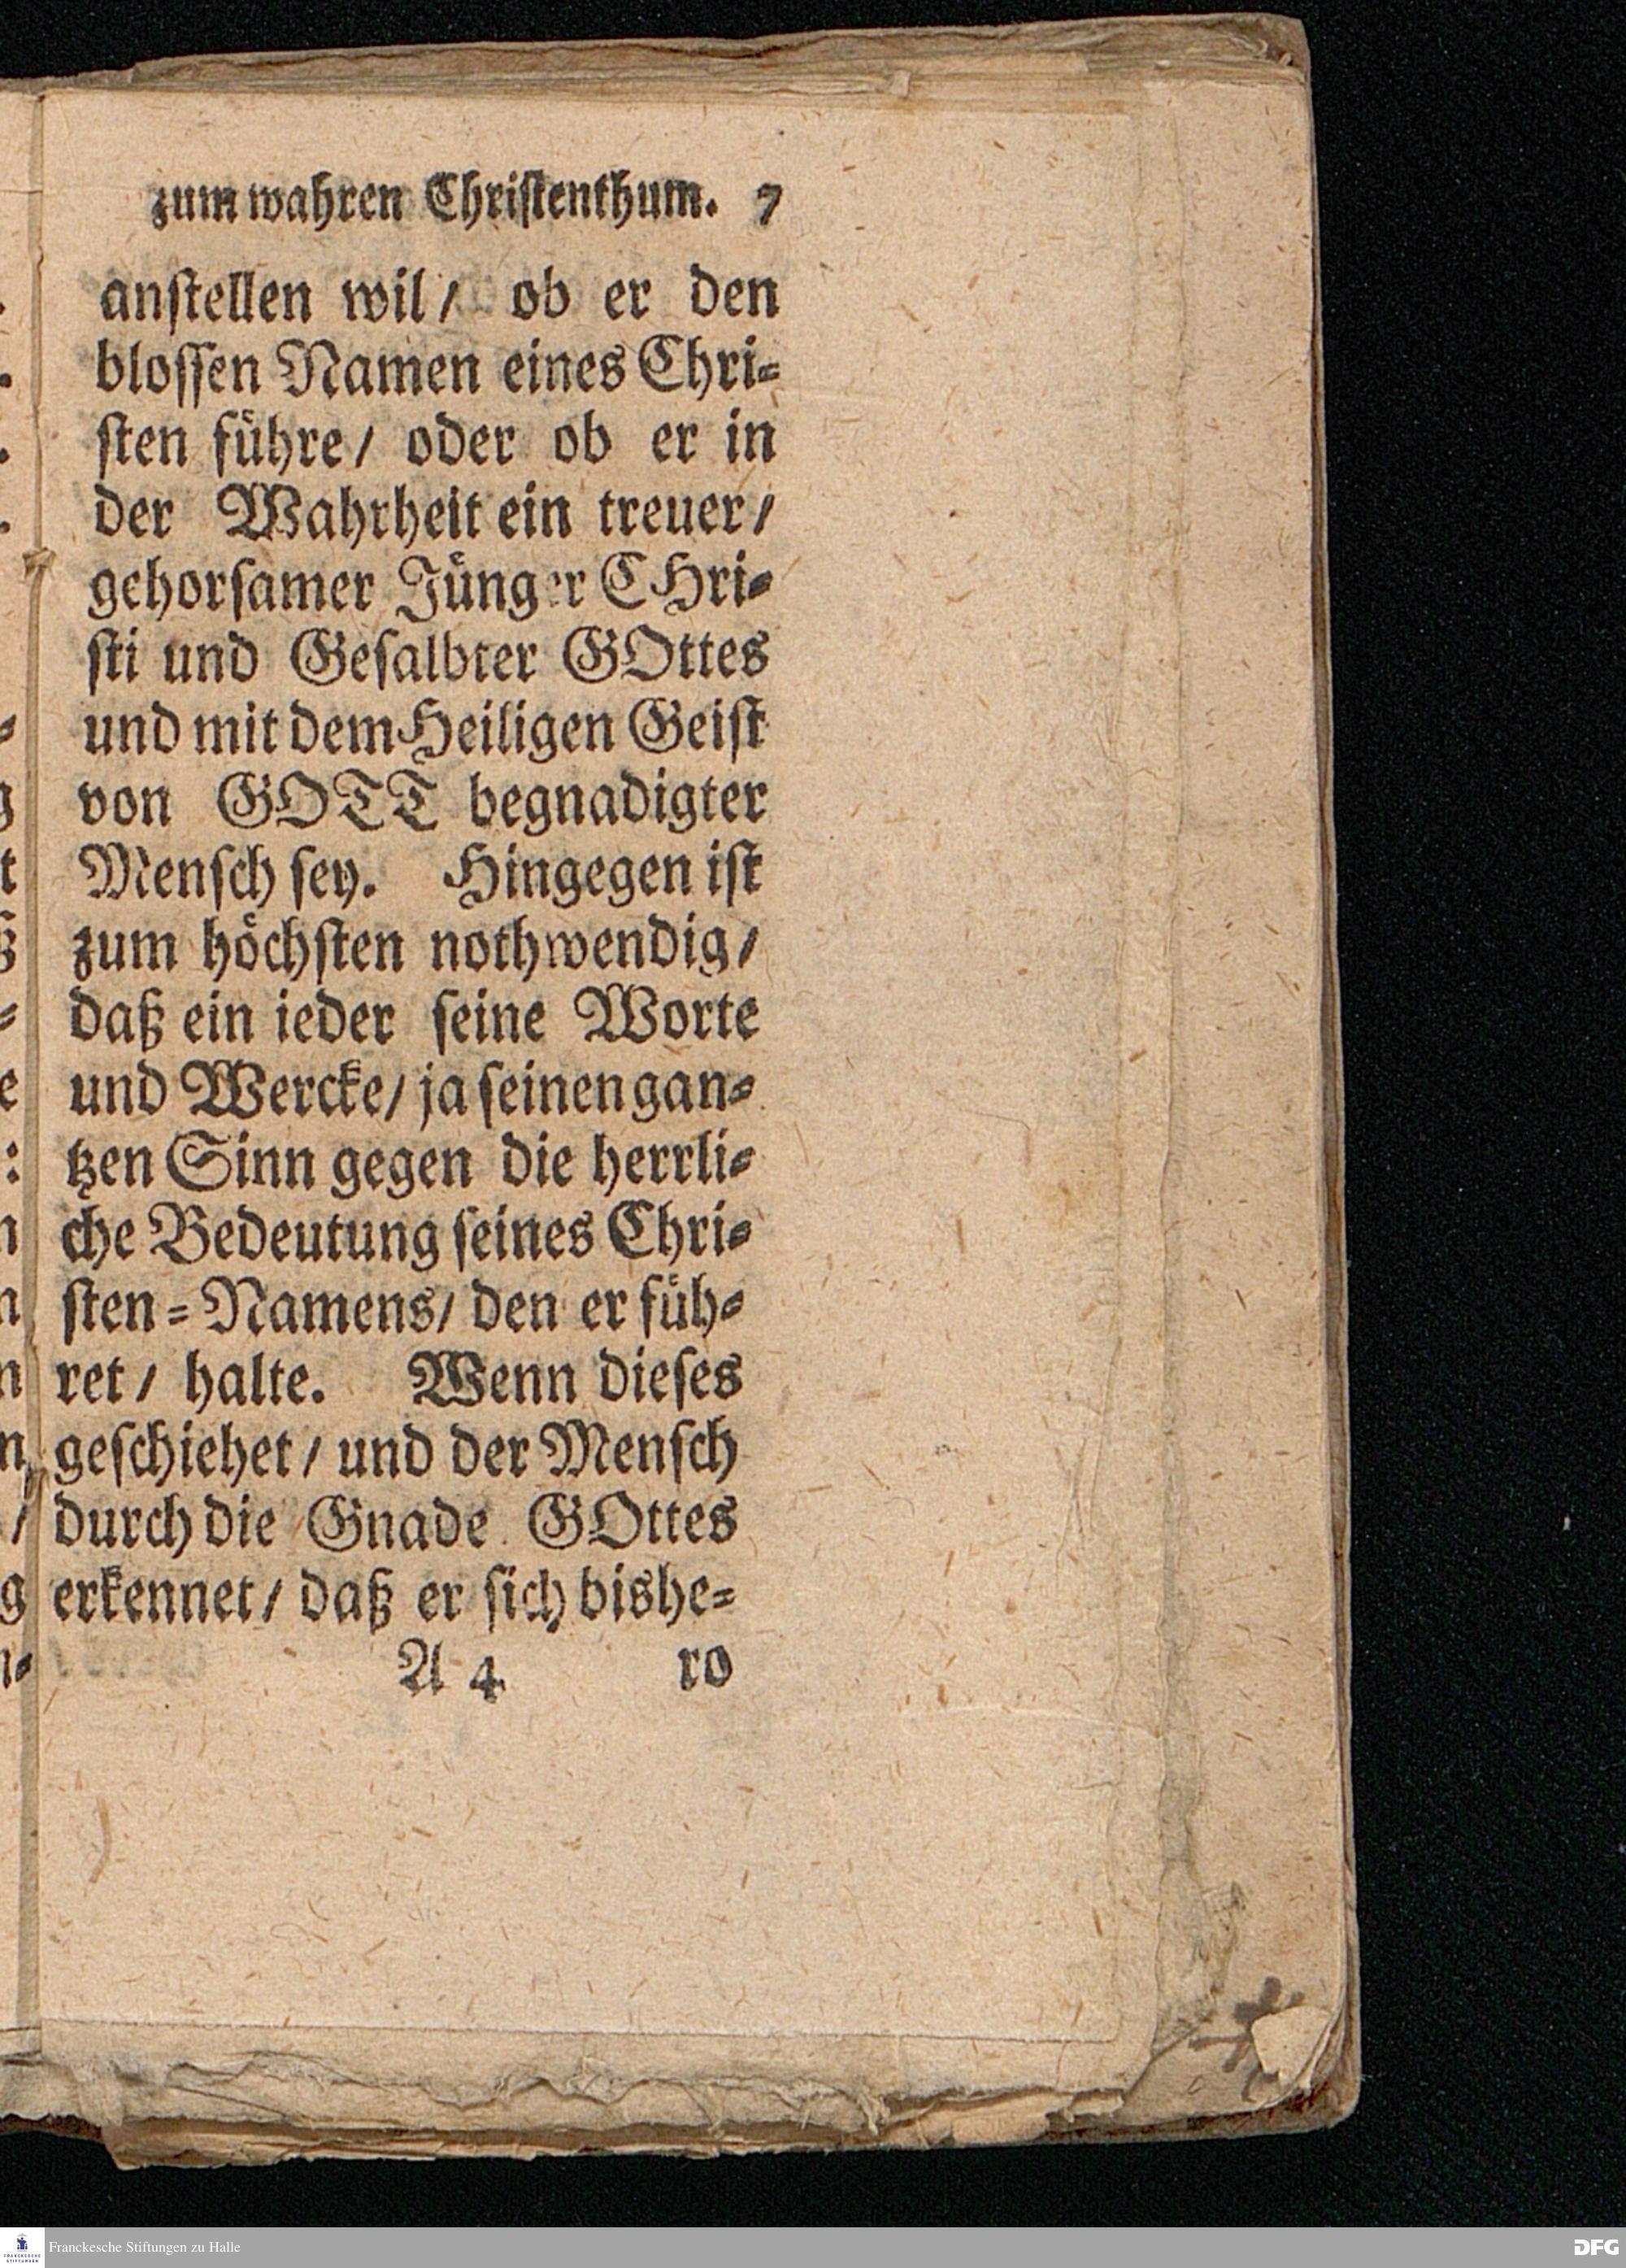 zum wahren Christenthum. 7
anstellen wil / ob er den
blossen Namen eines Chri-
sten führe / oder ob er in
der Wahrheit ein treuer /
gehorsamer Jünger CHri-
sti und Gesalbter GOttes
und mit dem Heiligen Geist
von GOTT begnadigter
Mensch sey. Hingegen ist
zum höchsten nothwendig /
daß ein ieder seine Worte
und Wercke / ja seinen gan-
tzen Sinn gegen die herrli-
che Bedeutung seines Chri-
sten-Namens / den er füh-
ret / halte. Wenn dieses
geschiehet / und der Mensch
durch die Gnade GOttes
erkennet / daß er sich bishe-
A 4 ro
Franckesche Stiftungen zu Halle
DFG